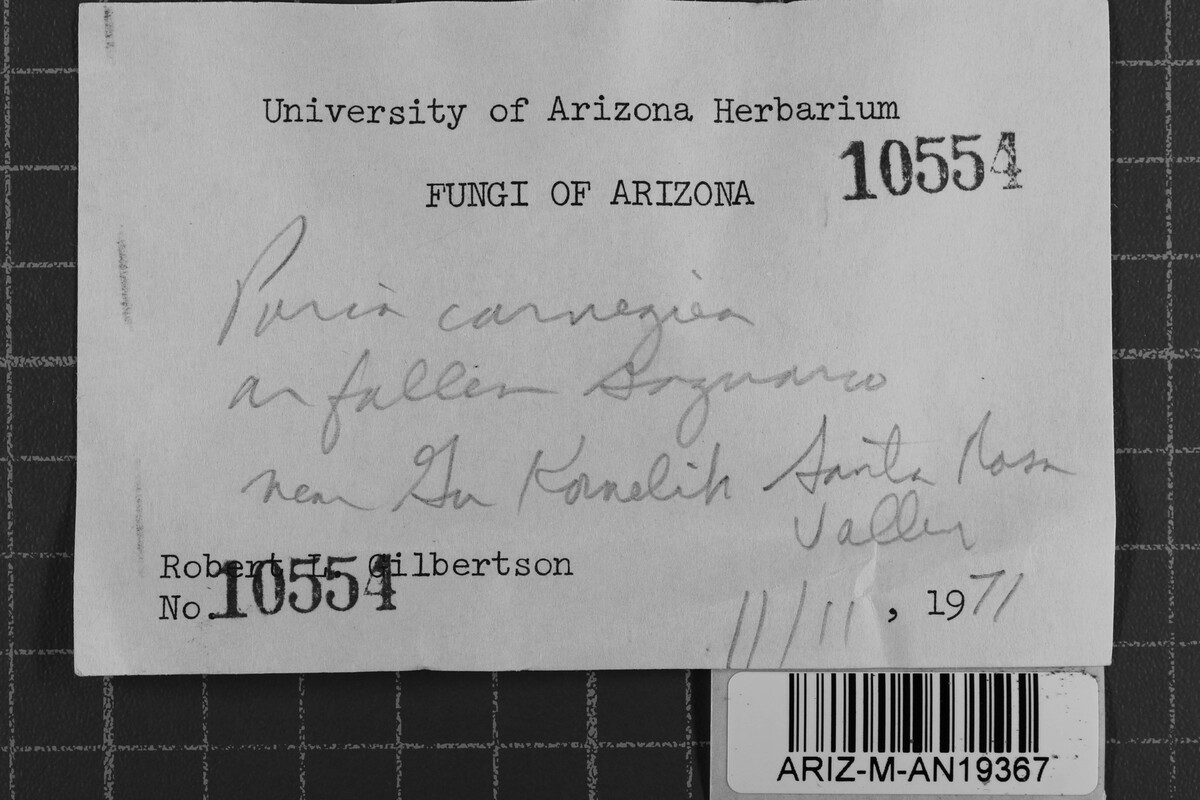 University of Arizona Herbarium
10554
FUNGI OF ARIZONA
Poria carnegiea
on fallen Saguaro
near Gu Komelik Santa Rosa
Valley
Robert L. Gilbertson
No. 10554
11/11, 1971
ARIZ-M-AN19367